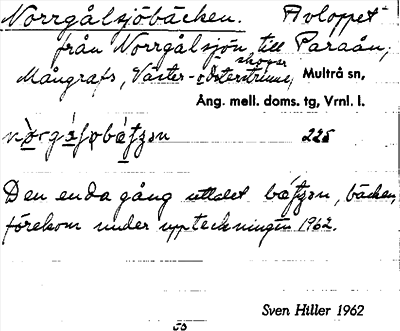 Norrgålsjöbäcken. Avloppet
från Norrgålsjön till Paraån,
skogar
Mångrafs, Väster- o Österstrinne, Multrå sn,
Ång. mell. doms. tg, Vrnl. l.
225
Den enda gång uttalet, bäcken,
förekom under uppteckningen 1962.
Sven Hiller 1962